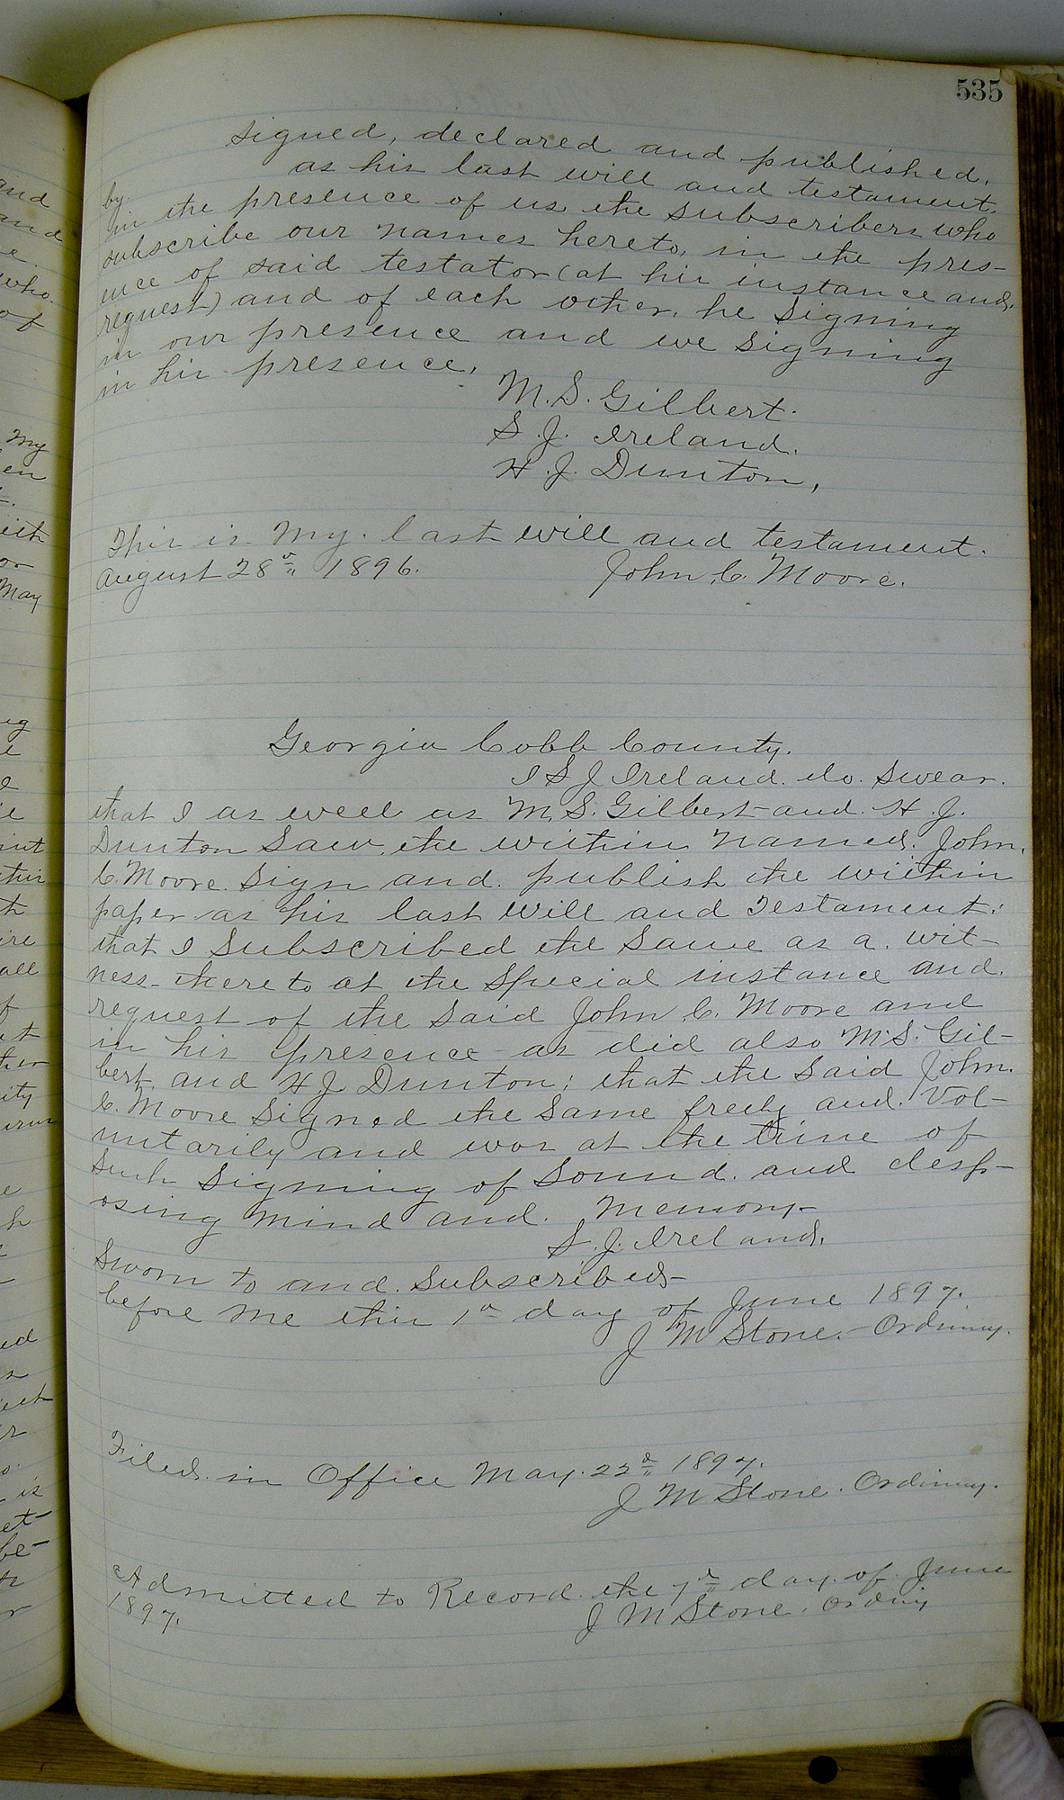 535
signed, declared and published,
by as his last will and testament,
in the presence of us the subscribers who
subscribe our names hereto, in the pres-
ence of said testator (at his instance and
request) and of each other, he signing
in our presence and we signing
in his presence.
M. S. Gilbert.
S. J. Ireland.
H. J. Dunton,
This is my last will and testament.
August 28th 1896. John C. Moore.
Georgia Cobb County.
I S J Ireland do swear
that I as well as M. S. Gilbert and H. J.
Dunton Saw the within named John
C. Moore Sign and publish the within
paper as his last Will and Testament;
that I Subscribed the Same as a wit-
ness thereto at the Special instance and
request of the Said John C. Moore and
in his presence as did also M. S. Gil-
bert and H J Dunton; that the Said John
C. Moore Signed the Same freely and Vol-
untarily and was at the time of
Such Signing of Sound and desp-
osing mind and memory
S. J. Ireland,
Sworn to and Subscribed
before me this 1st day of June 1897.
J M Stone. Ordinary.
Filed in Office May 22d 1897.
J M Stone. Ordinary.
Admitted to Record the 7th day of June
1897.
J M Stone. Ordiny
and
and
who
of
My
en
May
all
ity
is
et-
be-